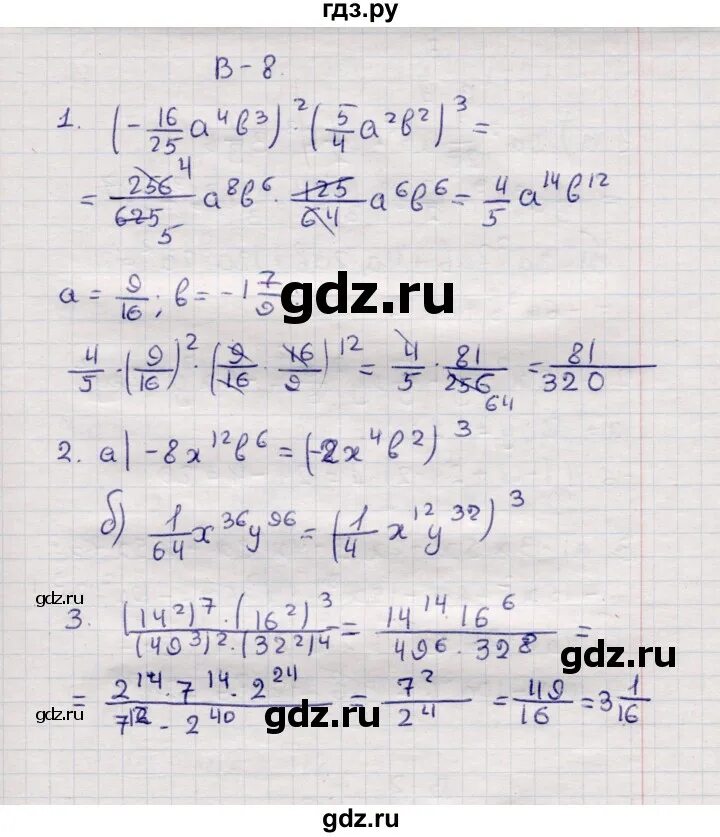 гдз.ру
В-8.
1. (-16/25 a⁴b³)² · (5/4 a²b²)³ =
= 256/625 4/5 a⁸b⁶ · 125/64 a⁶b⁶ = 4/5 a¹⁴b¹²
a = 9/16; b = -1 7/9
gdz.ru
4/5 · (9/16)² · (9/16 · 16/9)¹² = 4/5 · 81/256 64 = 81/320
2. а) -8x¹²b⁶ = (-2x⁴b²)³
б) 1/64 x³⁶y⁹⁶ = (1/4 x¹²y³²)³
gdz.ru
3. (14²)⁷ · (16²)³ / (49³)² · (32²)⁴ = 14¹⁴ · 16⁶ / 49⁶ · 32⁸ =
gdz.ru
= 2¹⁴ · 7¹⁴ · 2²⁴ / 7¹² - 2⁴⁰ = 7²/2⁴ = 49/16 = 3 1/16
gdz.ru
gdz.ru
gdz.ru